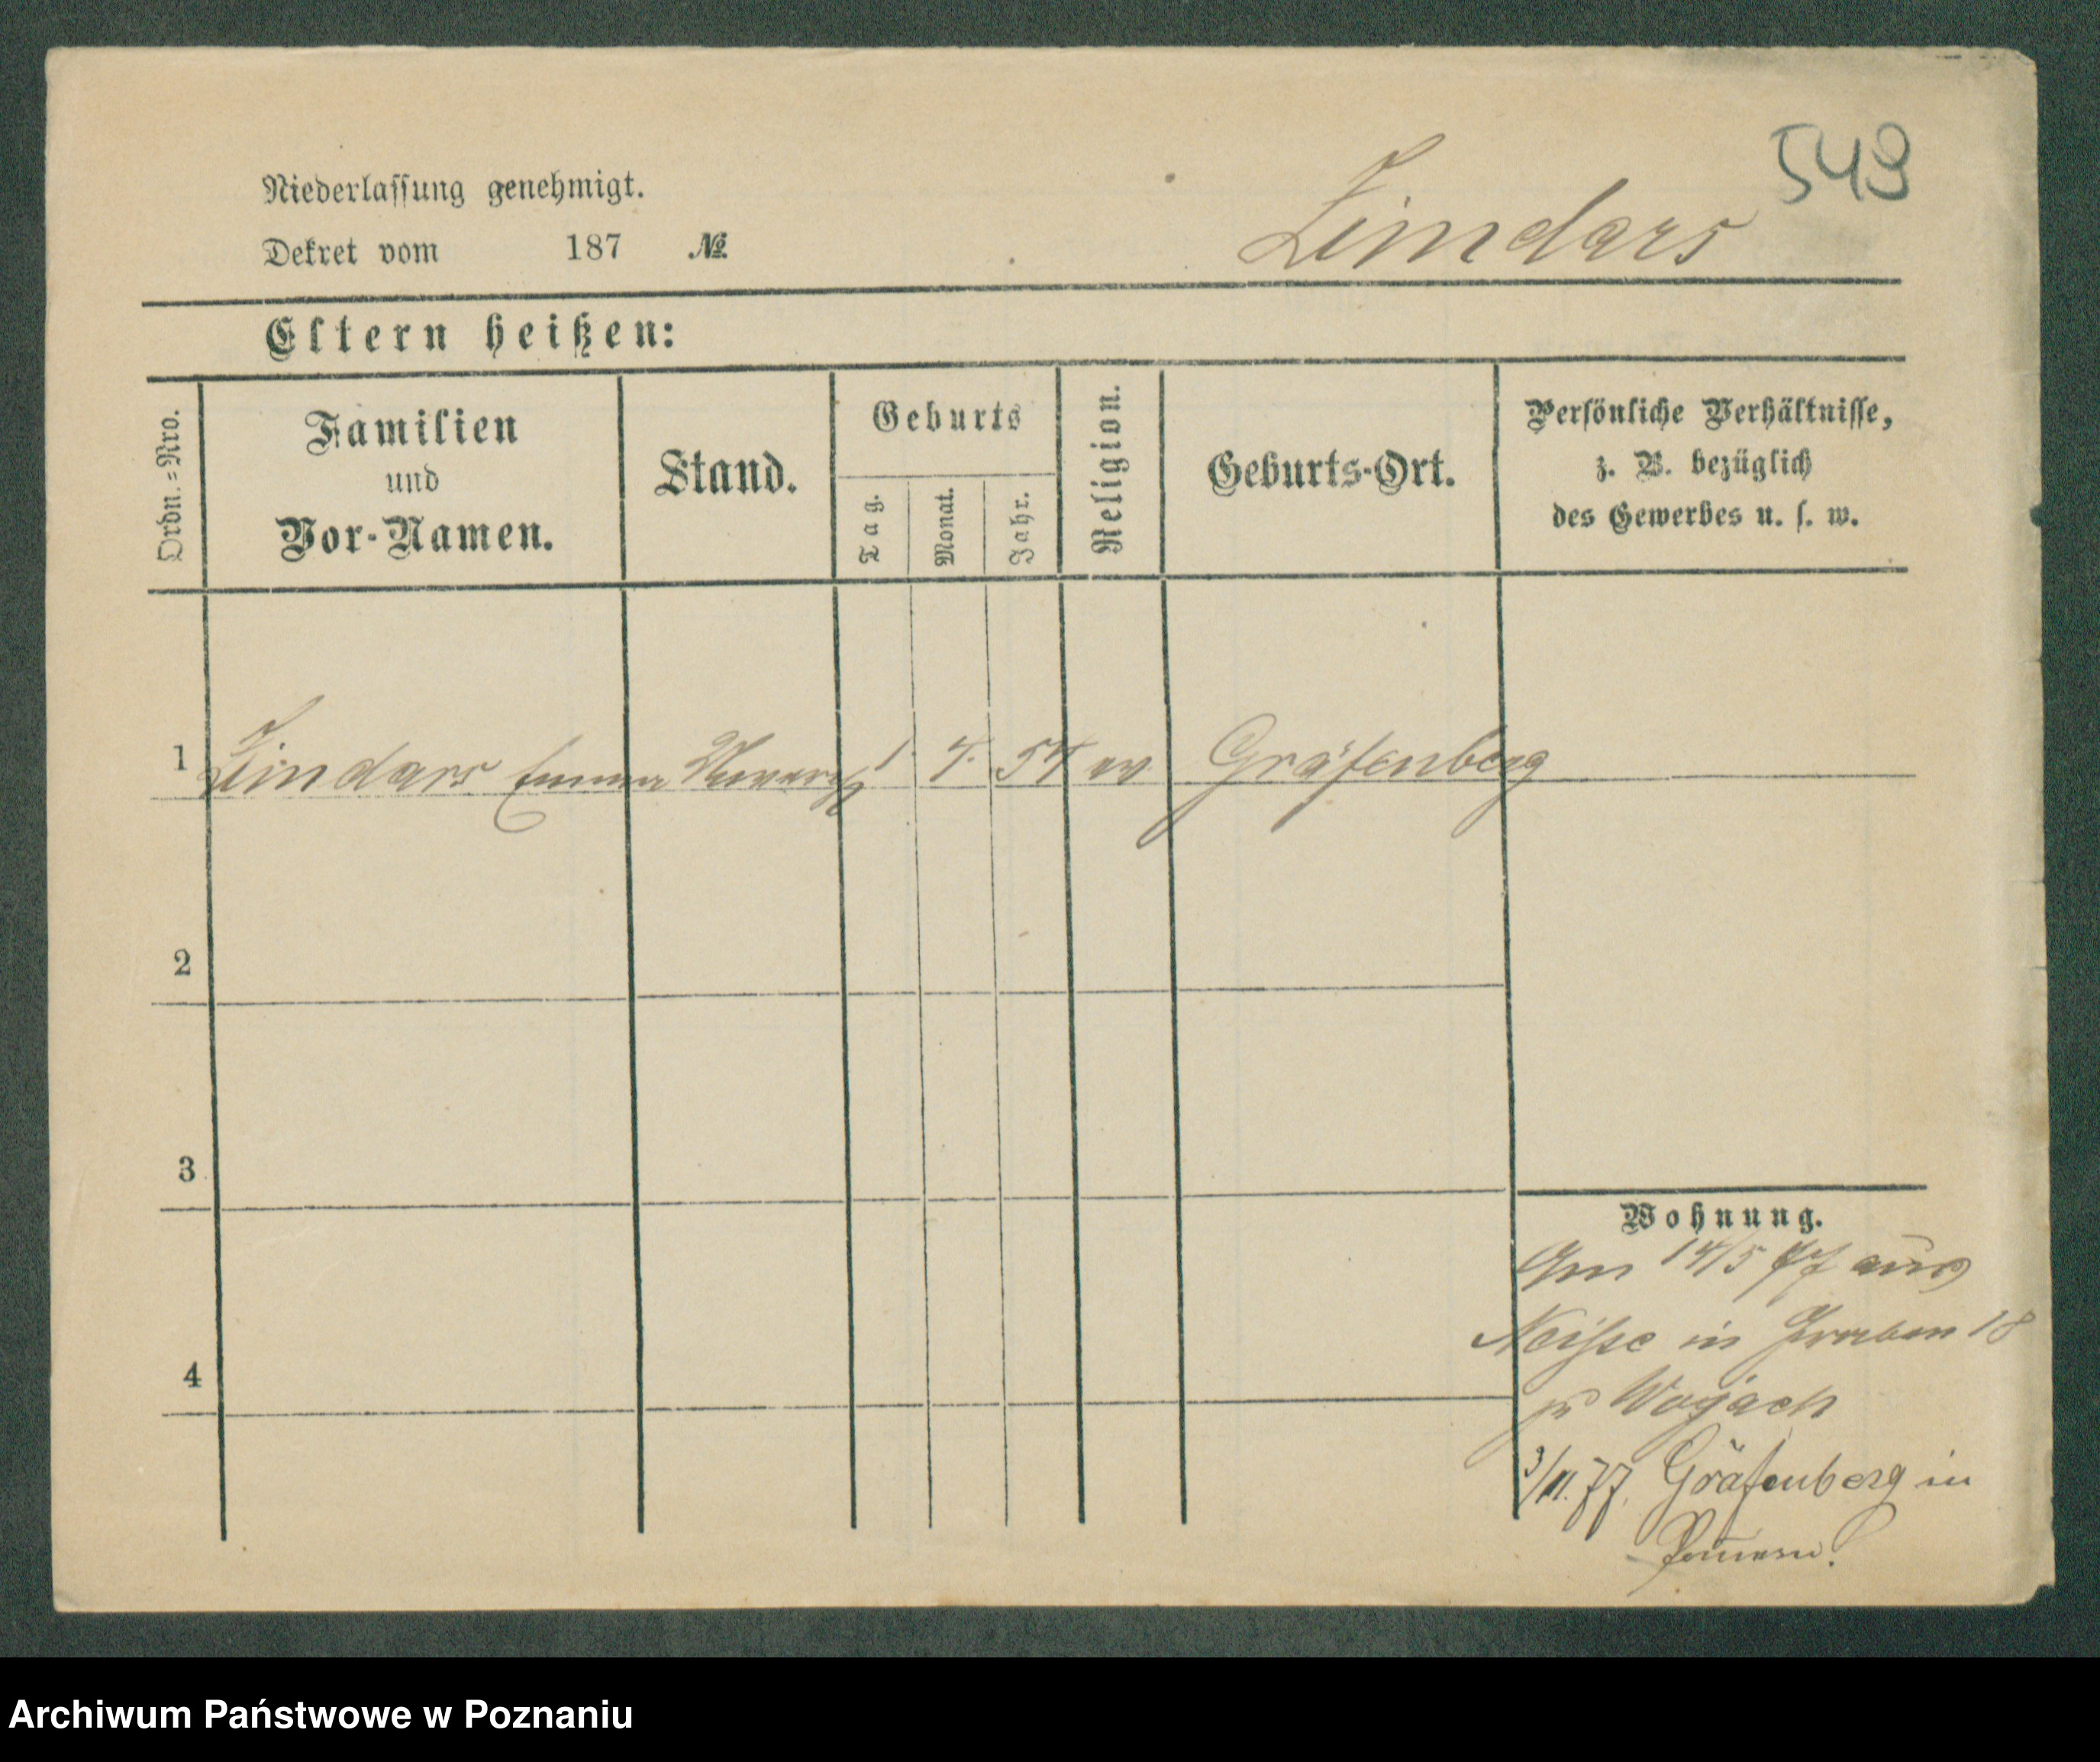 543
Niederlassung genehmigt.
Dekret vom 187 №
Zindars
Eltern heißen:
Ordn.=Nro.
Familien
und
Vor-Namen.
Stand.
Geburts
Tag.
Monat.
Jahr.
Religion.
Geburts-Ort.
Persönliche Verhältnisse,
z. B. bezüglich
des Gewerbes u. s. w.
1 Zindars Emma 1. 4. 54 ev Gräfenberg
2
3
4
Wohnung.
Am 14/5 77 aus
Neisse in Graben 18
zu
3/11. 77. Gräfenberg in
Pom̄ern.
Archiwum Państwowe w Poznaniu